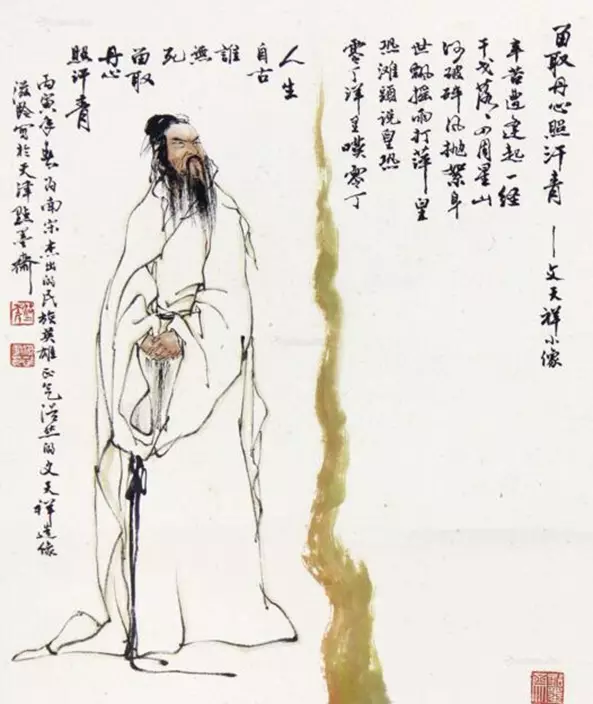 留取丹心照汗青 — 文天祥小像
辛苦遭逢起一经
干戈落々四周星山
河破碎风抛絮身
世飘摇雨打萍皇
恐滩頭说皇恐
零丁洋里嘆零丁
人生
自古
誰
無
死
留取
丹心
照汗青
丙寅年春为南宋杰出的民族英雄正气浩然的文天祥造像
滋龄写於天津點墨齋